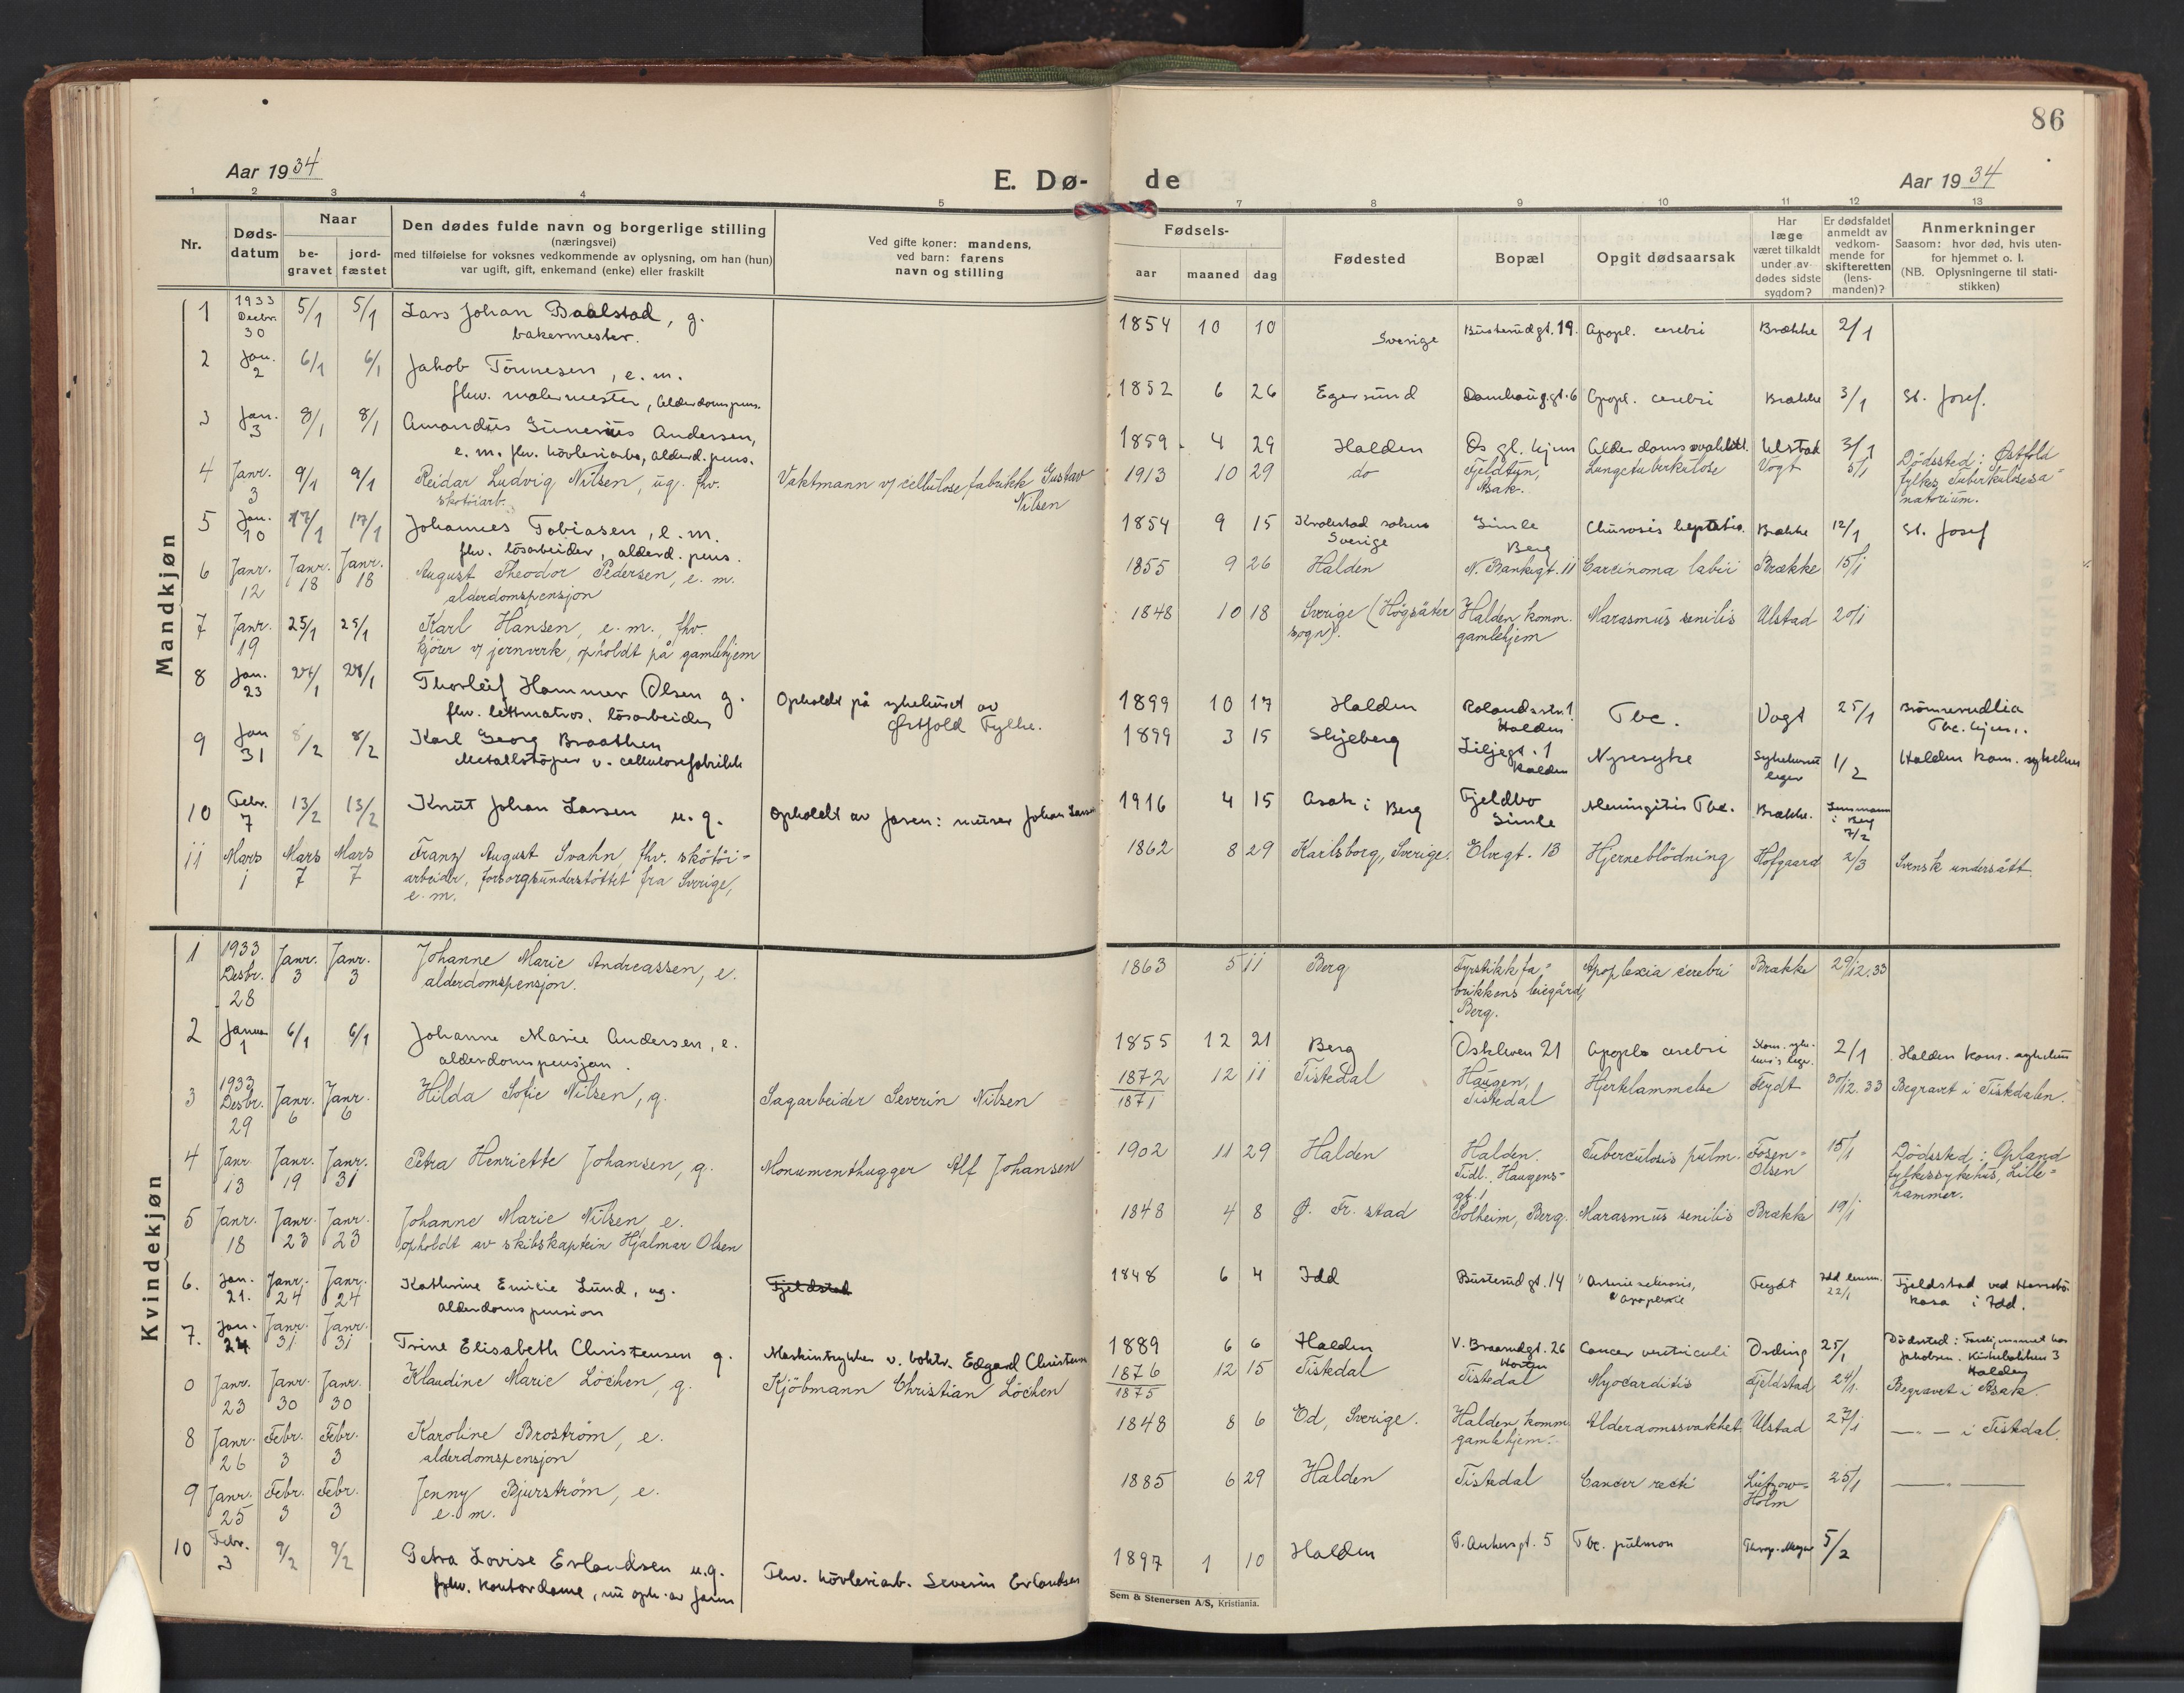 86
Aar 1934
E. Dø- de
Aar 1934
1 2 3 4 5 7 8 9 10 11 12 13
Nr.
Døds-datum
Naar
be-gravet
jord-fæstet
Den dødes fulde navn og borgerlige stilling
(næringsvei)
med tilføielse for voksnes vedkommende av oplysning, om han (hun)
var ugift, gift, enkemand (enke) eller fraskilt
Ved gifte koner: mandens,
ved barn: farens
navn og stilling
Fødsels-
aar maaned dag
Fødested
Bopæl
Opgit dødsaarsak
Har læge været tilkaldt under av-dødes sidste sygdom?
Er dødsfaldet anmeldt av vedkom-mende for skifteretten (lens-manden)?
Anmerkninger
Saasom: hvor død, hvis uten-for hjemmet o. l.
(NB. Oplysningerne til stati-stikken)
Mandkjøn
1 1933 Decbr. 30 5/1 5/1 Lars Johan Baalstad, g. 1854 10 10 Sverige Busterudgt. 19. Apopl. cerebri Brække 2/1
bakermester.
2 Jan. 2 6/1 6/1 Jakob Tönnesen, e. m. 1852 6 26 Egersund Damhauggt. 6 Apopl. cerebri Brække 3/1 St. Josef.
fhv. malermester, alderdomspens.
3 Jan. 3 8/1 8/1 Amandus Gunerius Andersen, 1859 4 29 Halden Os gl. hjem Ulstad 3/1
e. m. fhv. hövleriarb., alderd. pens.
4 Janr. 3 9/1 9/1 Reidar Ludvig Nilsen, ug. fhv. Vaktmann v/ cellulosefabrikk Gustav 1913 10 29 do Fjeldtun, Lungetuberkulose Vogt 5/1 Dödssted: Østfold
skotöiarb. Nilsen Asak. fylkes Tuberkulosesa=
natorium.
5 Jan. 10 17/1 17/1 Johannes Tobiasen, e. m. 1854 9 15 Krokstad sokn Simle Brække 12/1 St. Josef
fhv. lösarbeider, alderd. pens. Sverige Berg
6 Janr. 12 Janr. 18 Janr. 18 August Theodor Pedersen, e. m. 1855 9 26 Halden N. Bankegt. 11 Carcinoma labii Brække 15/1
alderdomspensjon
7 Janr. 19 25/1 25/1 Karl Hansen, e. m., fhv. 1848 10 18 Sverige (Högsäter Halden komm. Marasmus senilis Ulstad 20/1
kjörer v/ jernverk, opholdt på gamlehjem sogn). gamlehjem
8 Jan. 23 27/1 27/1 Thorleif Hammer Olsen g. Opholdt på sykehuset av 1899 10 17 Halden Rolandsstr. 1. Tbc. Vogt 25/1
fhv. lettmatros, lösarbeider Østfold Fylke. Halden Tbc. hjem.
9 Jan 31 8/2 8/2 Karl Georg Braathen 1899 3 15 Skjeberg Liljegt. 1 Nyresyke Sykehusets 1/2 Halden kom. sykehus
Metallstöper v. cellulosefabrikk Halden leger
10 Febr. 7 13/2 13/2 Knut Johan Larsen u. g. Opholdt av faren: murer Johan Larsen 1916 4 15 Asak i Berg Fjeldbo Meningitis Tbc. Brække. Lensmann
Simle i Berg
7/2
11 Mars 1 Mars 7 Mars 7 Franz August Svahn, fhv. skötöi= 1862 8 29 Karlsborg, Sverige. Elvegt. 13 Hjerneblödning Hofgaard 2/3 Svensk undersått.
arbeider, forsorgsunderstöttet fra Sverige,
e. m.
Kvindekjøn
1 1933 Desbr. 28 Janr. 3 Janr. 3 Johanne Marie Andreassen, e. 1863 5 11 Berg Fyrstikkfa= Apoplexia cerebri Brække 29/12.33
alderdomspensjon. brikkens leiegård,
Berg.
2 Januar 1 6/1 6/1 Johanne Marie Andersen, e. 1855 12 21 Berg Oskleven 21 Apopl. cerebri Kom. syke- 2/1 Halden kom. sykehus
alderdomspensjon. husets lege.
3 1933 Desbr. 29 Janr. 6 Janr. 6 Hilda Sofie Nilsen, g. Sagarbeider Severin Nilsen 1872 12 11 Tistedal Haugen, Hjertelammelse Feydt 30/12.33 Begravet i Tistedalen.
1871 Tistedal
4 Janr. 13 Janr. 19 Janr. 31 Petra Henriette Johansen, g. Monumenthugger Alf Johansen 1902 11 29 Halden Halden. Tuberculosis pulm. Fosen= 15/1 Dödssted: Opland
Tidl. Haugens= Olsen fylkessykehus, Lille=
gt. 1 hammer.
5 Janr. 18 Janr. 23 Janr. 23 Johanne Marie Nilsen, e. 1848 4 8 G. Fr. stad Solheim, Berg. Marasmus senilis Brække 19/1
opholdt av skibskaptein Hjalmar Olsen
6. Jan. 21. Janr. 24 Janr. 24 Kathrine Emilie Lund, ug. Fjeldstad 1848 6 4 Idd Busterudgt. 14 Arteriesclerosis, Feydt Idd lensm. Fjeldstad ved
alderdomspension Apoplexie 22/1 i Idd.
7. Jan. 24 Janr. 31 Janr. 31 Trine Elisabeth Christensen g. Maskintrykker v. boktr. Edgard Christensen 1889 6 6 Halden V. Braarudgt. 26 Cancer ventriculi Ording 25/1 Dödssted:
Jakobsen. Kirkebakken 3
Halden
0 Janr. 23 Janr. 30 Janr. 30 Klaudine Marie Löchen, g. Kjöbmann Christian Löchen 1876 12 15 Tistedal Tistedal Myocarditis Fjeldstad 24/1. Begravet i Asak.
1875
8 Janr. 26 Febr. 3 Febr. 3 Karoline Broström, e. 1848 8 6 Ed, Sverige. Halden komm. Alderdomssvakhet. Ulstad 27/1 — " — i Tistedal.
alderdomspensjon gamlehjem.
9 Janr. 25 Febr. 3 Febr. 3 Jenny Bjurström, e. 1885 6 29 Halden Tistedal Cancer recti Lützow= 25/1 — " —
e. m. Holm
10 Febr. 3 9/2 9/2 Petra Lovise Erlandsen u.g. Fhv. hövleriarb. Severin Erlandsen 1897 1 10 Halden P. Ankersgt. 5 Tbc. pulmon 5/2
fhv. kontordame, nu oph. av faren
Sem & Stenersen A/S, Kristiania.